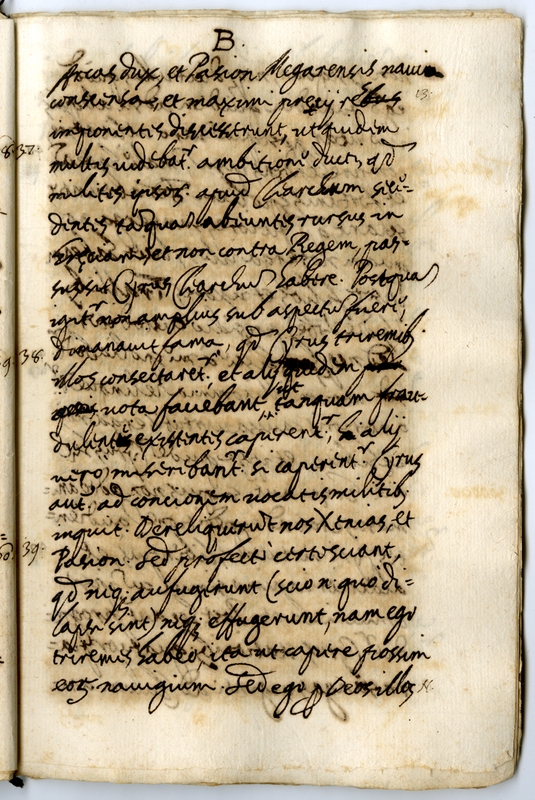 B.
dux, et Pasion Megarensis navim
conscensa, et maximi precij rebus
13.
impionentis, discesserunt, ut quidem
8. 37.
multis videbat^r. ambitione ducti, q̃d
milites ipsos. apud Clearchum
dentis tãquã abeuntes rursus in
et non contra Regem, pas-
sus sit Cyrus Clearchũ habere. Postquã
igit^r non amplius sub aspectũ fuerũt,
dimanavit fama, q̃d Cyrus triremib;
9. 38.
illos consectaret^r. et alij quidem
vota faciebant, ut tanquam frau-
dulentes existentes caperent^r, alij
vero, miseribant^r. si caperent^r. Cyrus
aut. ad concionem vocatis militib;
inquit. Dereliquerũt nos Xenias, et
39.
Pasion. Sed profectò certò sciant,
q̃d neq; aufugerunt (scio n. quò di-
lapsi sint) neq; effugerunt, nam ego
triremes habeo, ita ut capere possim
eoȝ. navigium. Sed ego p Deos illos